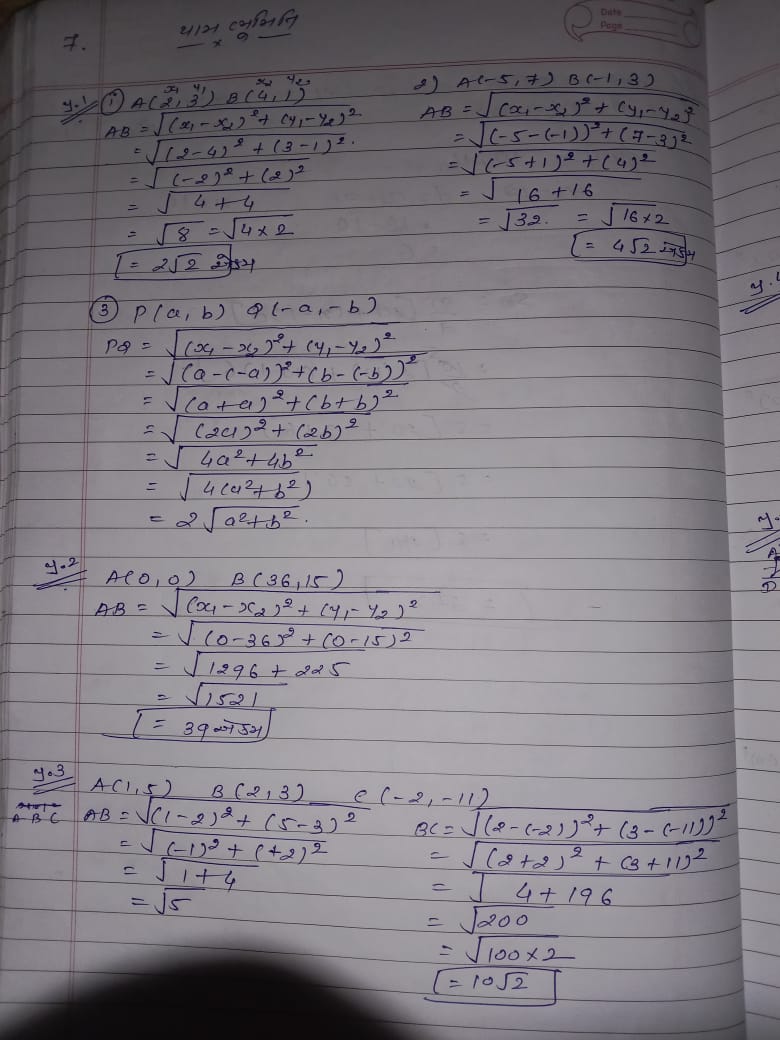 7.
યામ ભૂમિતિ
Date
Page
પ્ર.1 ① A(2, 3) B(4, 1)
x₁ y₁ x₂ y₂
AB = √(x₁ - x₂)² + (y₁ - y₂)²
= √(2-4)² + (3-1)².
= √(-2)² + (2)²
= √4 + 4
= √8 = √4×2
= 2√2 એકમ
2) A(-5, 7) B(-1, 3)
AB = √(x₁ - x₂)² + (y₁ - y₂)²
= √(-5-(-1))² + (7-3)²
= √(-5+1)² + (4)²
= √16 + 16
= √32. = √16×2
= 4√2 એકમ
③ P(a, b) Q(-a, -b)
PQ = √(x₁ - x₂)² + (y₁ - y₂)²
= √(a-(-a))² + (b-(-b))²
= √(a+a)² + (b+b)²
= √(2a)² + (2b)²
= √4a² + 4b²
= √4(a² + b²)
= 2√a² + b².
પ્ર.2 A(0, 0) B(36, 15)
AB = √(x₁ - x₂)² + (y₁ - y₂)²
= √(0-36)² + (0-15)²
= √1296 + 225
= √1521
= 39 એકમ
પ્ર.3 A(1, 5) B(2, 3) C(-2, -11)
A B C
AB = √(1-2)² + (5-3)²
= √(-1)² + (+2)²
= √1+4
= √5
BC = √(2-(-2))² + (3-(-11))²
= √(2+2)² + (3+11)²
= √4 + 196
= √200
= √100×2
= 10√2